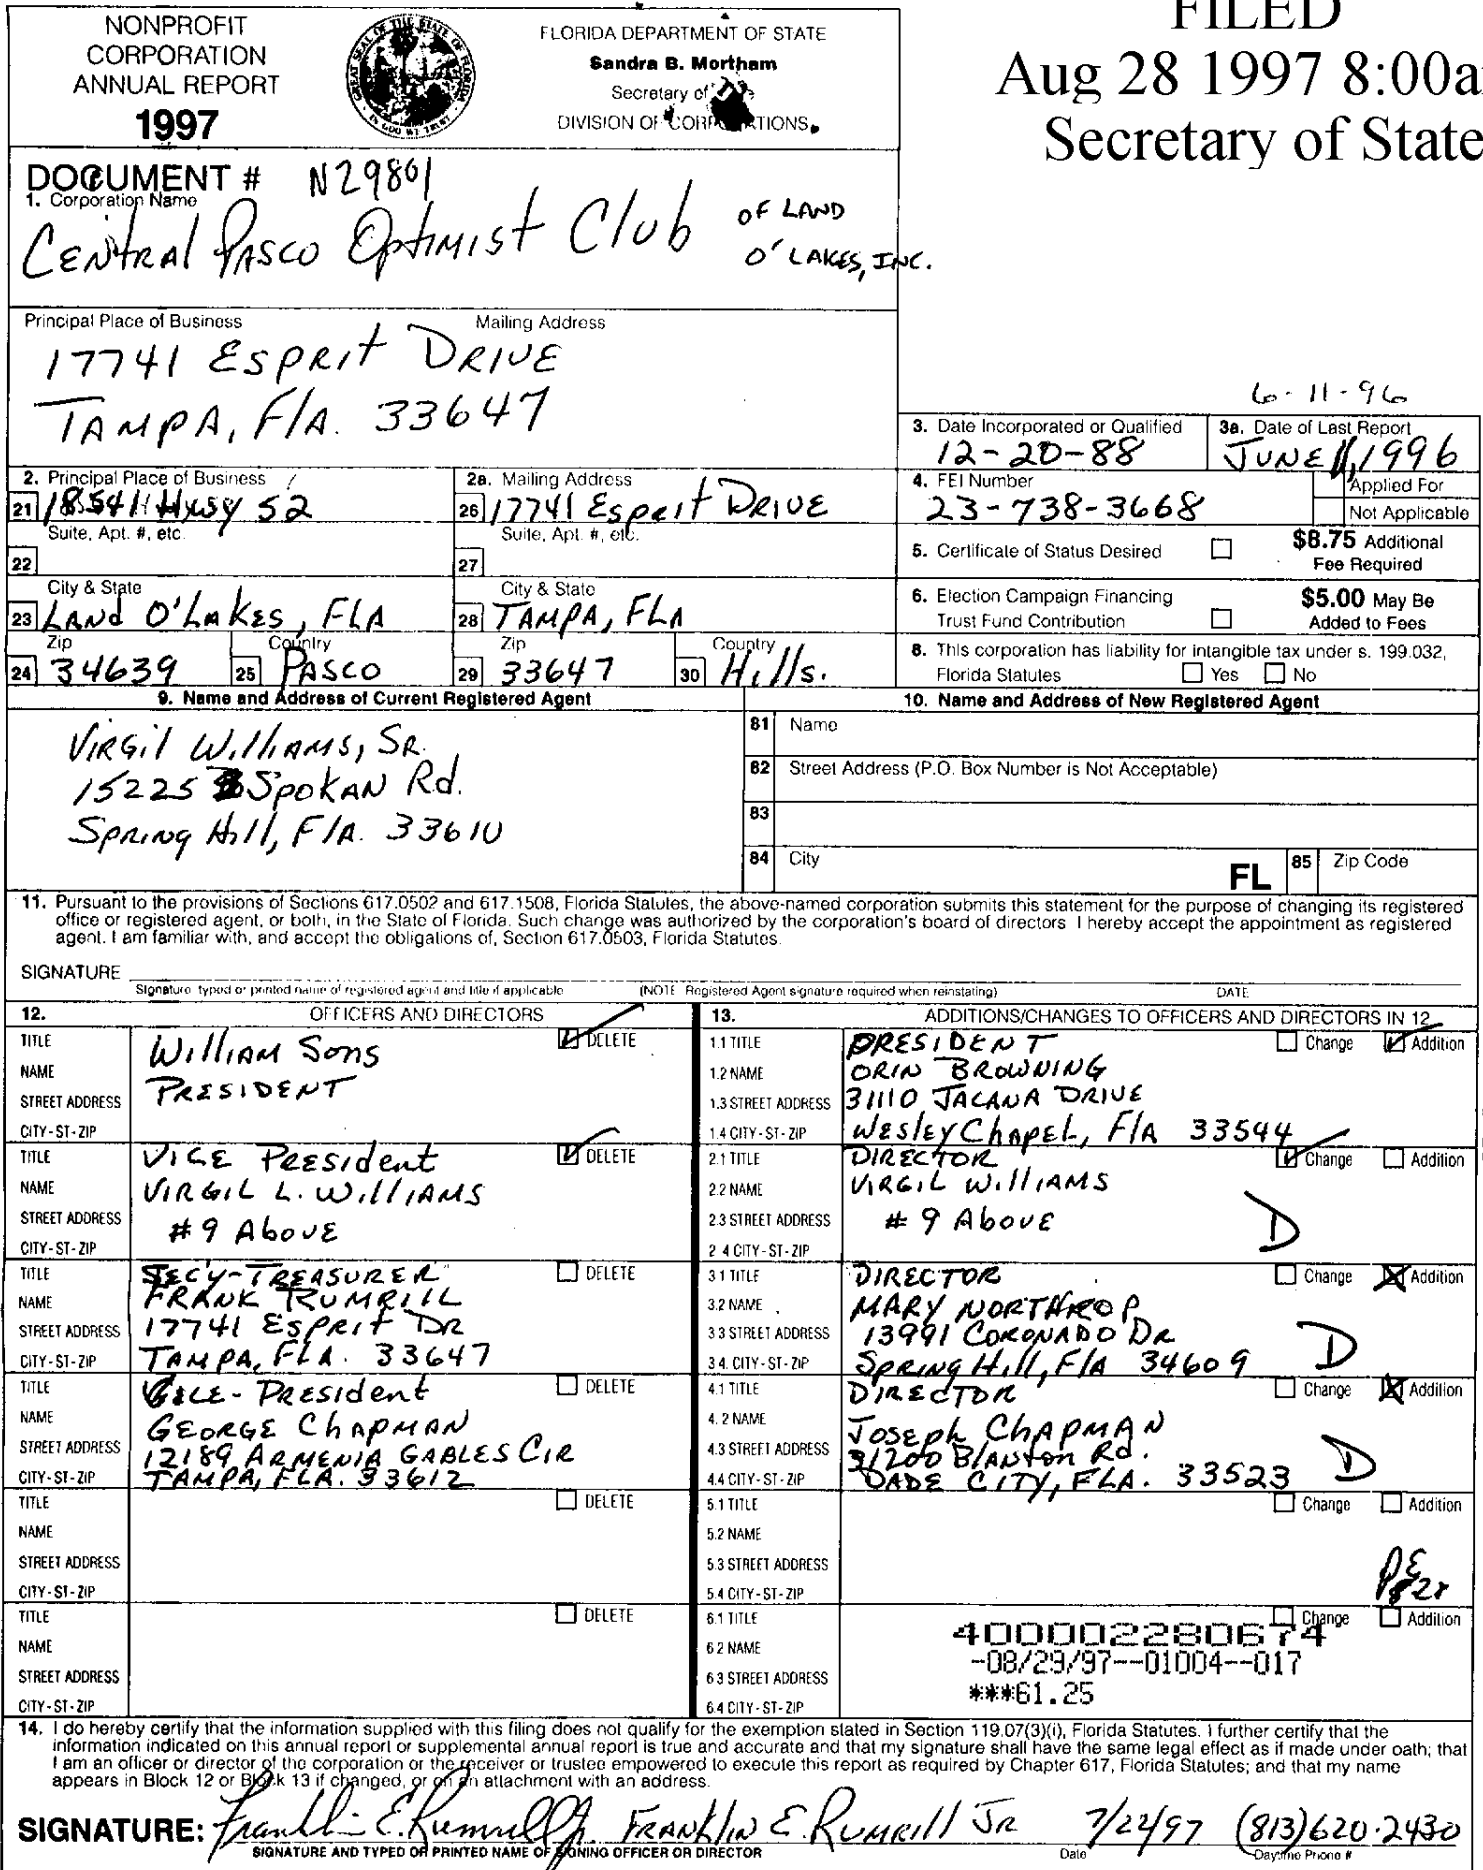 NONPROFIT
CORPORATION
ANNUAL REPORT
1997
GREAT SEAL OF THE STATE OF FLORIDA
IN GOD WE TRUST
FLORIDA DEPARTMENT OF STATE
Sandra B. Mortham
Secretary of
DIVISION OF CORPORATIONS
FILED
Aug 28 1997 8:00a
Secretary of State
DOCUMENT # N29801
1. Corporation Name
CENTRAL PASCO OPTIMIST Club OF LAND
O'LAKES, INC.
Principal Place of Business Mailing Address
17741 ESPRIT DRIVE
TAMPA, FlA. 33647
6-11-96
3. Date Incorporated or Qualified
12-20-88
3a. Date of Last Report
JUNE 11, 1996
2. Principal Place of Business
21 18541 Hwy 52
Suite, Apt. #, etc.
22
City & State
23 LANd O'LAKES, FLA
Zip Country
24 34639 25 PASCO
2a. Mailing Address
26 17741 Esprit DRIVE
Suite, Apt. #, etc.
27
City & State
28 TAMPA, FLA
Zip Country
29 33647 30 Hills.
4. FEI Number
23-738-3668
Applied For
Not Applicable
5. Certificate of Status Desired
$8.75 Additional
Fee Required
6. Election Campaign Financing
Trust Fund Contribution
$5.00 May Be
Added to Fees
8. This corporation has liability for intangible tax under s. 199.032,
Florida Statutes Yes No
9. Name and Address of Current Registered Agent
VIRGIL WILLIAMS, SR.
15225 SPOKAN Rd.
SPRING Hill, FlA. 33610
10. Name and Address of New Registered Agent
81 Name
82 Street Address (P.O. Box Number is Not Acceptable)
83
84 City FL 85 Zip Code
11. Pursuant to the provisions of Sections 617.0502 and 617.1508, Florida Statutes, the above-named corporation submits this statement for the purpose of changing its registered
office or registered agent, or both, in the State of Florida. Such change was authorized by the corporation's board of directors I hereby accept the appointment as registered
agent. I am familiar with, and accept the obligations of, Section 617.0503, Florida Statutes.
SIGNATURE
Signature typed or printed name of registered agent and title if applicable (NOTE Registered Agent signature required when reinstating) DATE
12. OFFICERS AND DIRECTORS
TITLE William Sons DELETE
NAME PRESIDENT
STREET ADDRESS
CITY-ST-ZIP
TITLE VICE PRESIdent DELETE
NAME VIRGIL L. WILLIAMS
STREET ADDRESS #9 AboVE
CITY-ST-ZIP
TITLE SECY-TREASURER DELETE
NAME FRANK RUMRILL
STREET ADDRESS 17741 ESPRIT DR
CITY-ST-ZIP TAMPA, FLA. 33647
TITLE VICE-PRESIdent DELETE
NAME GEORGE CHAPMAN
STREET ADDRESS 12189 ARMENIA GABLES CIR
CITY-ST-ZIP TAMPA, FLA. 33612
TITLE DELETE
NAME
STREET ADDRESS
CITY-ST-ZIP
TITLE DELETE
NAME
STREET ADDRESS
CITY-ST-ZIP
13. ADDITIONS/CHANGES TO OFFICERS AND DIRECTORS IN 12
1.1 TITLE PRESIDENT Change Addition
1.2 NAME ORIN BROWNING
1.3 STREET ADDRESS 31110 JACANA DRIVE
1.4 CITY-ST-ZIP WESLEY CHAPEL, FlA 33544
2.1 TITLE DIRECTOR Change Addition
2.2 NAME VIRGIL WILLIAMS
2.3 STREET ADDRESS #9 AboVE D
2 4 CITY-ST-ZIP
3 1 TITLE DIRECTOR Change Addition
3.2 NAME MARY NORTHROP
3 3 STREET ADDRESS 13991 CORONADO DR D
3 4. CITY-ST-ZIP SPRING Hill, FlA 34609
4.1 TITLE DIRECTOR Change Addition
4. 2 NAME JOSEPH CHAPMAN
4.3 STREET ADDRESS 31200 BlANTON Rd. D
4.4 CITY-ST-ZIP DADE CITY, FLA. 33523
5.1 TITLE Change Addition
5.2 NAME
5.3 STREET ADDRESS
5.4 CITY-ST-ZIP
6.1 TITLE Change Addition
400002280674
6 2 NAME -08/29/97--01004--017
6 3 STREET ADDRESS ***61.25
6.4 CITY-ST-ZIP
14. I do hereby certify that the information supplied with this filing does not qualify for the exemption stated in Section 119.07(3)(i), Florida Statutes. I further certify that the
information indicated on this annual report or supplemental annual report is true and accurate and that my signature shall have the same legal effect as if made under oath; that
I am an officer or director of the corporation or the receiver or trustee empowered to execute this report as required by Chapter 617, Florida Statutes; and that my name
appears in Block 12 or Block 13 if changed, or on an attachment with an address.
SIGNATURE: Franklin E. Rumrill Jr. FRANKlIN E. RUMRIll JR 7/22/97 (813)620-2430
SIGNATURE AND TYPED OR PRINTED NAME OF SIGNING OFFICER OR DIRECTOR Date Daytime Phone #